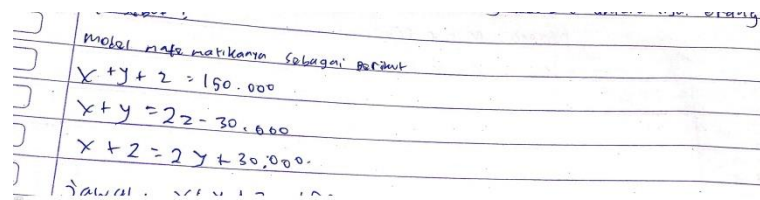 model matematikanya sebagai berikut
x + y + z = 150.000
x + y = 2z - 30.000
x + z = 2y + 30.000.